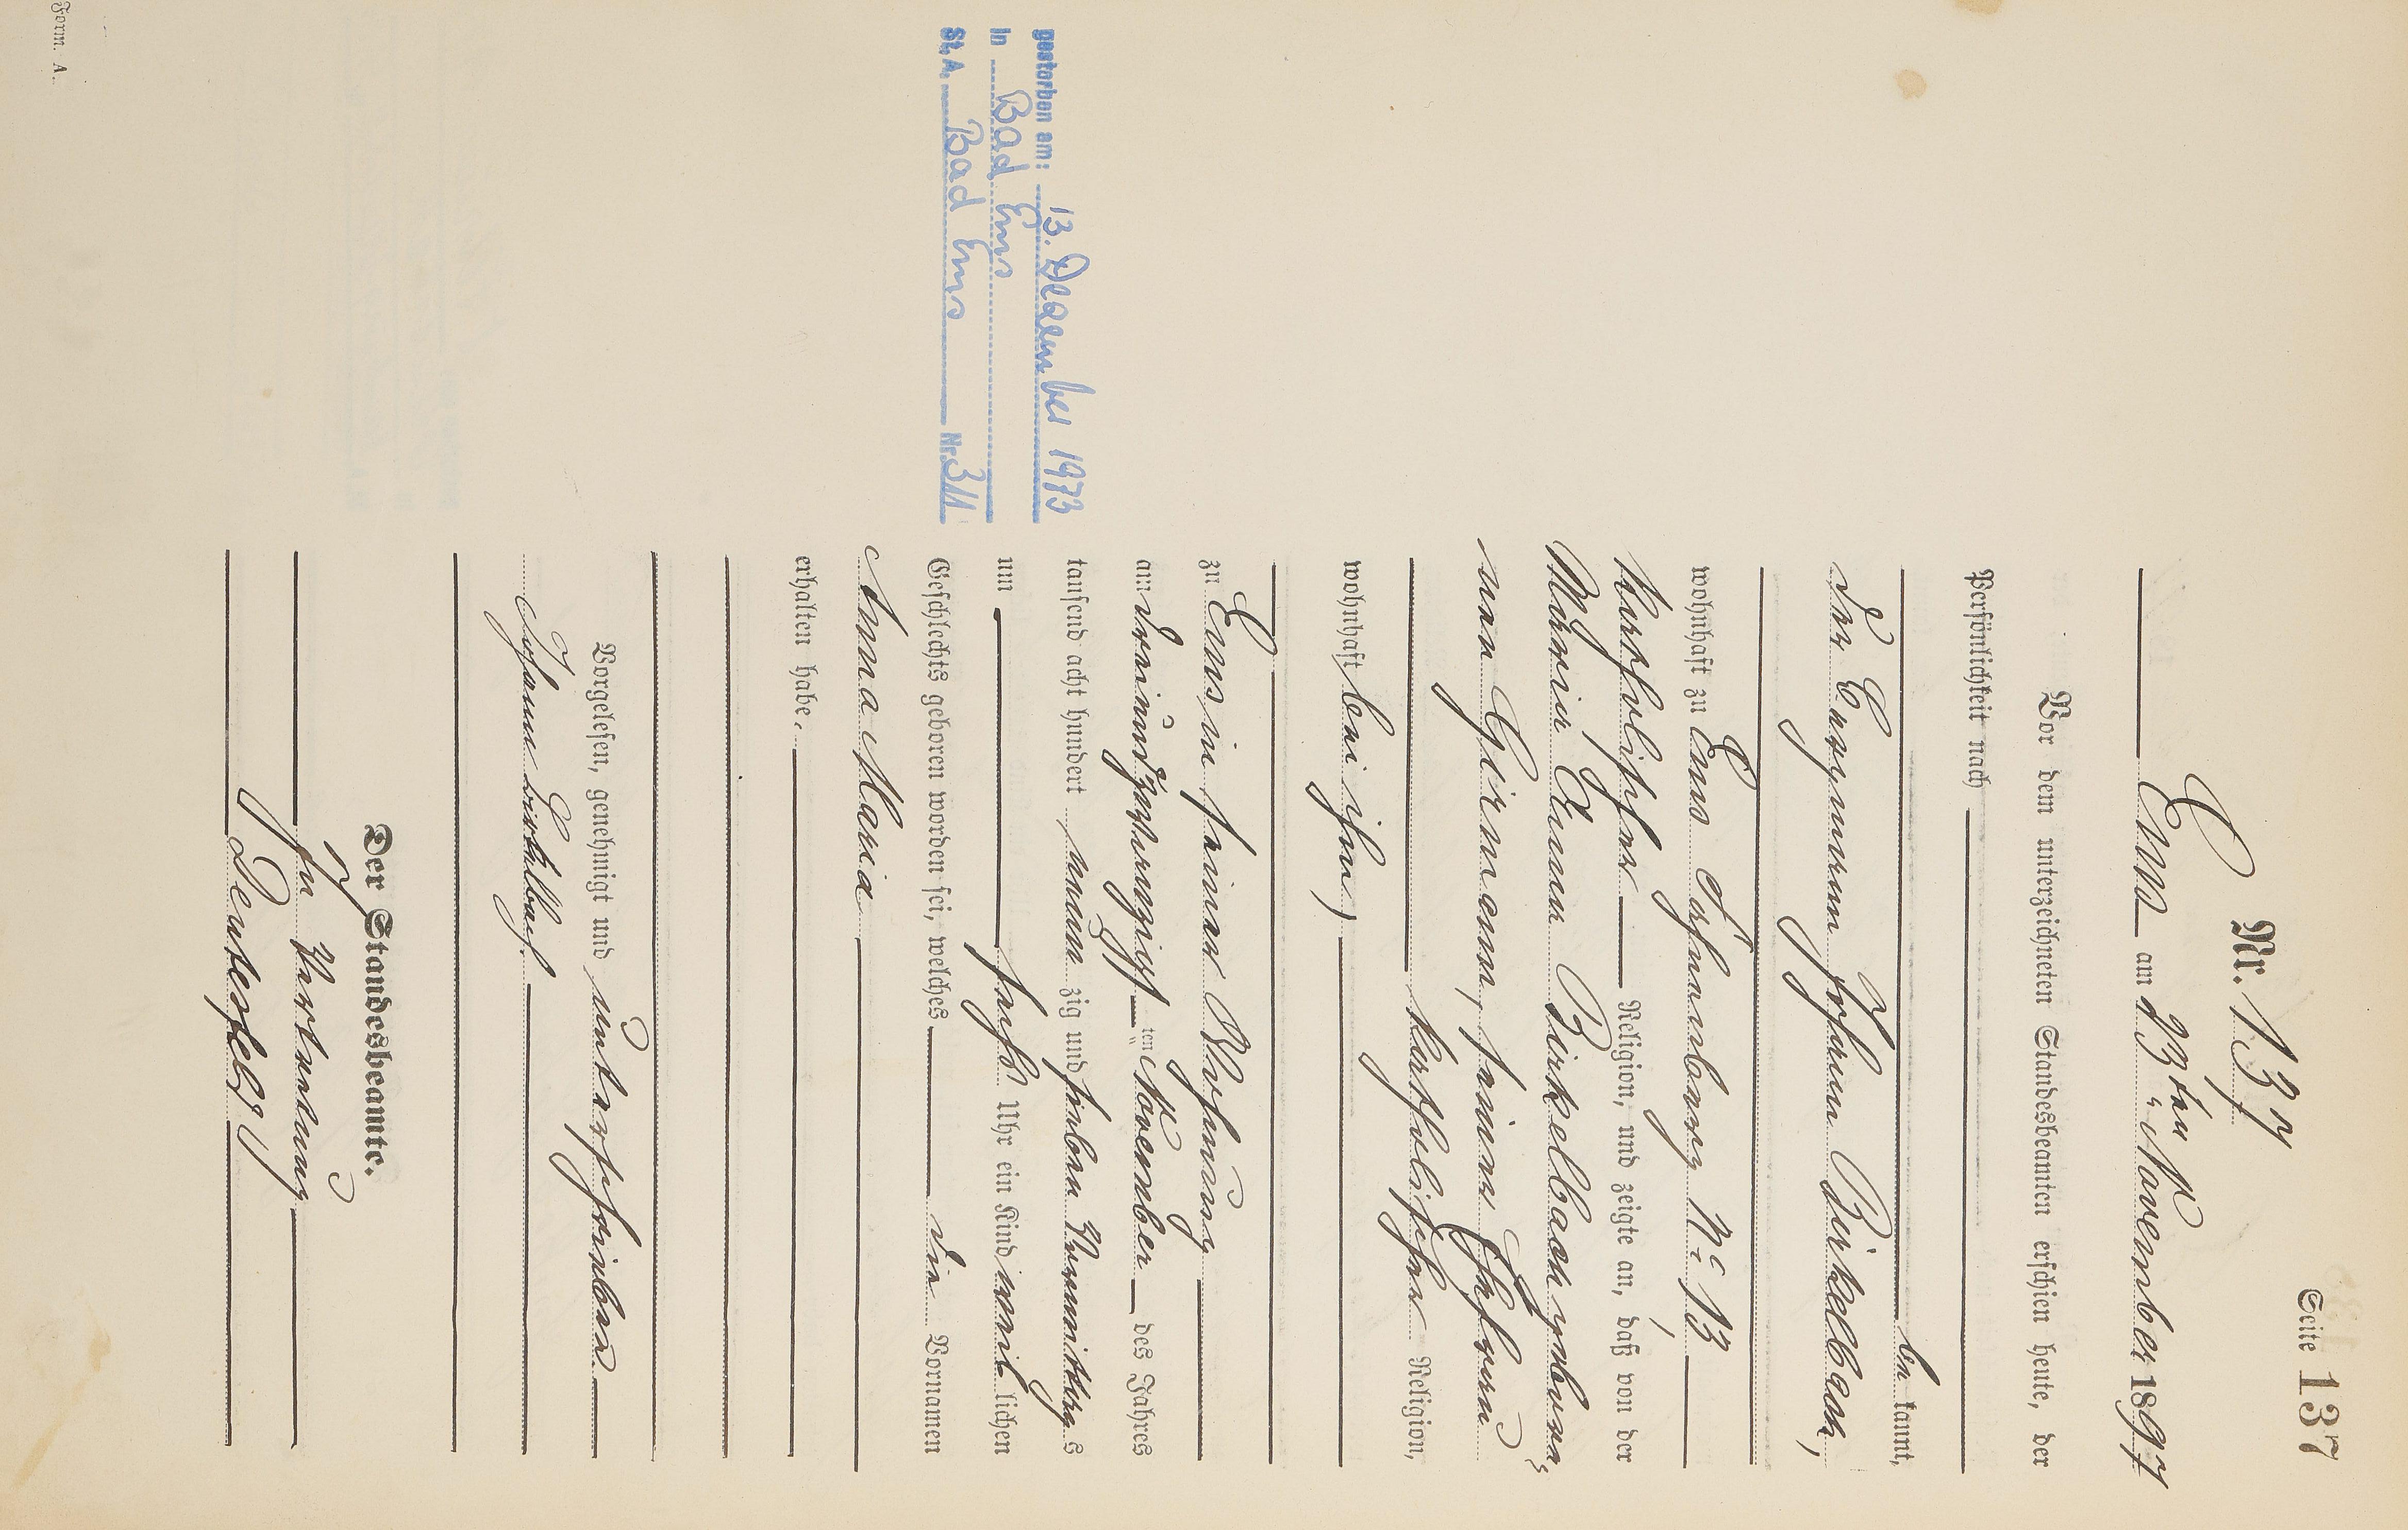 Seite 137
Nr. 137
Ems am 23ten November 1897
Vor dem unterzeichneten Standesbeamten erschien heute, der
Persönlichkeit nach
be kannt,
der Bergmann Johann Birkelbach,
wohnhaft zu Ems Schulberg No 13
katholischer Religion, und zeigte an, daß von der
Maria Anna Birkelbach gebore=
nen Girmann, seiner Ehefrau
katholischer Religion,
wohnhaft bei ihm,
zu Ems in seiner Wohnung
am dreiundzwanzigsten November des Jahres
tausend acht hundert neun zig und sieben Vormittags
um sechs Uhr ein Kind weib lichen
Geschlechts geboren worden sei, welches die Vornamen
Anna Maria
erhalten habe.
Vorgelesen, genehmigt und unterschrieben
Johann Birkelbach
Der Standesbeamte.
In Vertretung
gestorben am: 13. Dezember 1973
in Bad Ems
St.A. Bad Ems Nr. 311
Form. A.